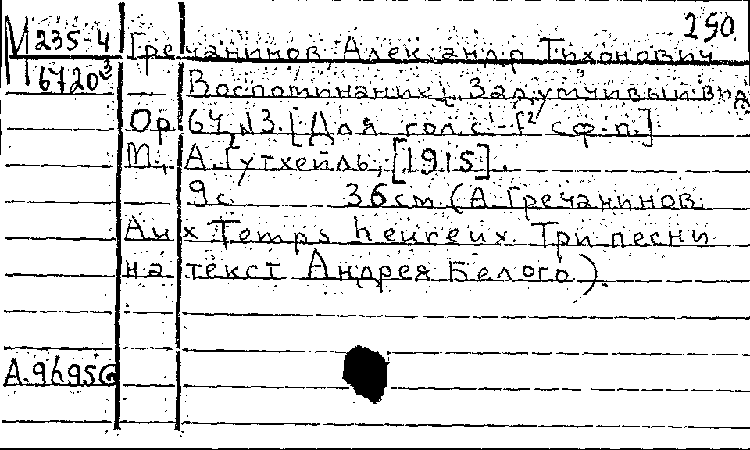 250
М 235-4
6720³
Гречанинов, Александр Тихонович
Воспоминание [Задумчивый вид]
Ор. 64, №3. [Для голс. f² с ф-п.]
М., А. Гутхейль, [1915].
9с. 36см (А. Гречанинов.
Aux Temps heureux. Три песни
на текст Андрея Белого).